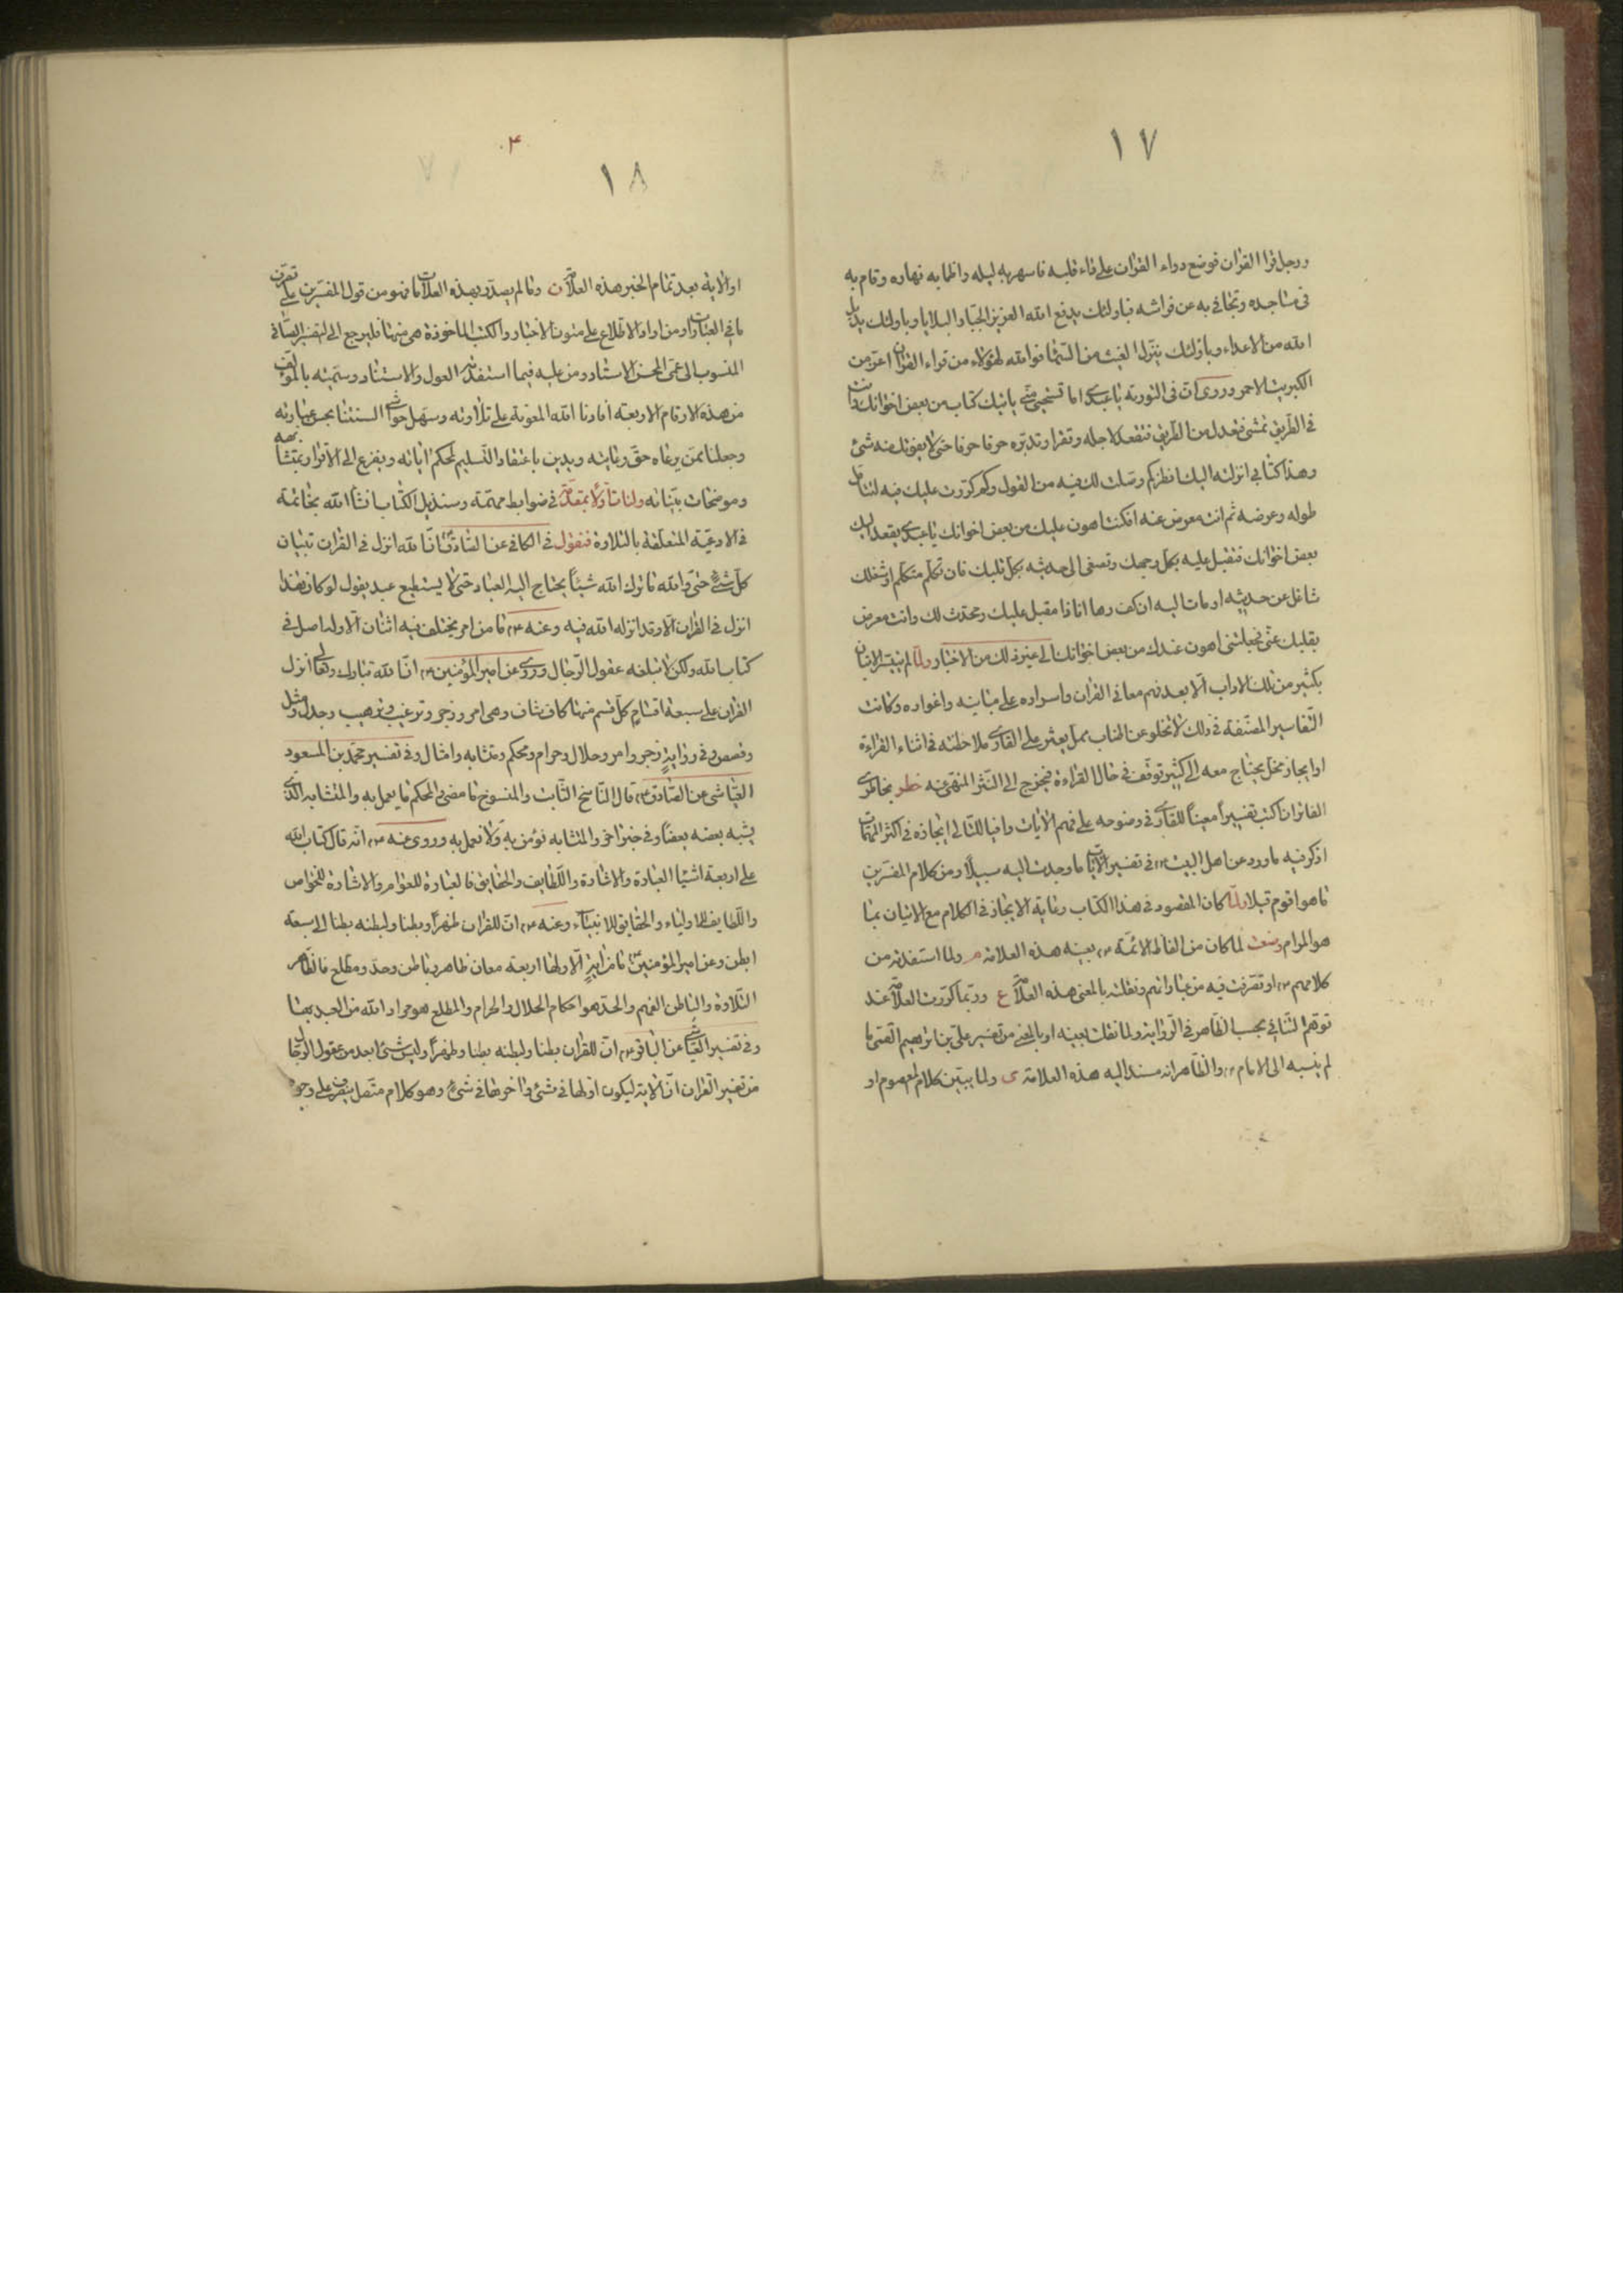 ١٧
ورجل قرا القران فوضع دواء القران على داء قلبه فاسهر به ليله واظما به نهاره وقام به
فى مساجده وتجافى به عن فراشه فباولئك يدفع الله العزيز الجبار البلايا وباولئك يديل
الله من الاعداء وباولئك ينزل الغيث من السماء فوالله لهؤلاء من قراء القران اعز من
الكبريت الاحمر وروى ان فى التورية يا عبدى اما تستحيى منى ياتيك كتاب من بعض اخوانك وانت
فى الطريق تمشى فتعدل من الطريق فتقعد لاجله وتقرا وتدبره حرفا حرفا حتى لا يفوتك منه شئ
وهذا كتابى انزلته اليك انظر كم وصلت لك فيه من القول وكم كررت عليك فيه لتتامل
طوله وعرضه ثم انت معرض عنه افكنت اهون عليك من بعض اخوانك يا عبدى يقعد اليك
بعض اخوانك فتقبل عليه بكل وجهك وتصغى الى حديثه بكل قلبك فان تكلم متكلم او شغلك
شاغل عن حديثه اومات اليه ان كف وها انا ذا مقبل عليك ومحدث لك وانت معرض
بقلبك عنى فجعلتنى اهون عندك من بعض اخوانك الى غير ذلك من الاخبار ولما لم يتيسر الاتيان
بكثير من تلك الاداب الا بعد فهم معانى القران واسراره على مبانيه واغواره وكانت
التفاسير المصنفة فى ذلك لا تخلو عن اطناب ممل يعثر على القارى ملاحظته فى اثناء القراءة
او ايجاز مخل يحتاج معه الى كثير توقف فى خال القراءة فيخرج الى النثر المنهى عنه خطر بخاطرى
الفاتر ان اكتب تفسيرا معينا للقارى فى وضوحه على فهم الايات وافيا للتالى ايجازه فى اكثر المهمات
اذكر فيه ما ورد عن اهل البيت ع فى تفسير الايات ما وجدت اليه سبيلا ومن كلام المفسرين
ما هو اقوم قيلا ولما كان المقصود فى هذا الكتاب رعاية الايجاز فى الكلام مع الاتيان بما
هو المرام وضعت لما كان من الفاظ الائمة ع بعينه هذه العلامة م ولما استفدته من
كلامهم ع او تصرفت فيه من عباراتهم ونقلته بالمعنى هذه العلامة ع وربما كررت العلامة عند
توهم التنافى بحسب الظاهر فى الرواية ولما نقلت بعينه او بالمعنى من تفسير على بن ابرهيم القمى ما
لم ينسبه الى الامام ع والظاهر انه مسند اليه هذه العلامة ى ولما يبين كلام المعصوم او
٤
١٨
او الاية بعد تمام الخبر هذه العلامة ن وما لم يصدر بهذه العلامات فهو من قول المفسرين على تصرف
ما فى العبارات ومن اراد الاطلاع على متون الاخبار والكتب الماخوذة هى منها فليرجع الى التفسير الصافى
المنسوب الى عمى المحسن الاستاد ومن عليه فيما استفدته العول والاستناد وسميته بالمؤلف
من هذه الارقام الاربعة افادنا الله المعونة على تلاوته وسهل حواشى السنتنا بحسن عبارته
وجعلنا ممن يرعاه حق رعايته ويدين باعتقاد التسليم لمحكم اياته ويفزع الى الاقرار بمتشابهه
وموضحات بيناته ولنات اولا بمقدمة فى ضوابط مهمة وسنذيل الكتاب انشا الله بخاتمة
فى الادعية المتعلقة بالتلاوة فنقول فى الكافى عن الصادق ع ان الله انزل فى القران تبيان
كل شئ حتى والله ما ترك الله شيئا يحتاج اليه العباد حتى لا يستطيع عبد يقول لو كان هذا
انزل فى القران الا وقد انزله الله فيه وعنه ع ما من امر يختلف فيه اثنان الا وله اصل فى
كتاب الله ولكن لا تبلغه عقول الرجال وروى عن امير المؤمنين ع ان الله تبارك وتعالى انزل
القران على سبعة اقسام كل قسم منها كاف شاف وهى امر وزجر وترغيب وترهيب وجدل ومثل
وقصص وفى رواية زجر وامر وحلال وحرام ومحكم ومتشابه وامثال وفى تفسير محمد بن المسعود
العياشى عن الصادق ع قال الناسخ الثابت والمنسوخ ما مضى والمحكم ما يعمل به والمتشابه الذى
يشبه بعضه بعضا وفى خبر اخر والمتشابه نؤمن به ولا نعمل به وروى عنه ع انه قال كتاب الله
على اربعة اشيا العبارة والاشارة واللطايف والحقايق فالعبارة للعوام والاشارة للخواص
واللطايف للاولياء والحقايق للانبياء وعنه ع ان للقران ظهرا وبطنا ولبطنه بطنا الى سبعة
ابطن وعن امير المؤمنين ع ما من اية الا ولها اربعة معان ظاهر وباطن وحد ومطلع فالظاهر
التلاوة والباطن الفهم والحد هو احكام الحلال والحرام والمطلع هو مراد الله من العبد بها
وفى تفسير العياشى عن الباقر ع ان للقران بطنا ولبطنه بطنا وظهرا وليس شئ ابعد من عقول الرجال
من تفسير القران ان الاية ليكون اولها فى شئ واخرها فى شئ وهو كلام متصل يتصرف على وجوه